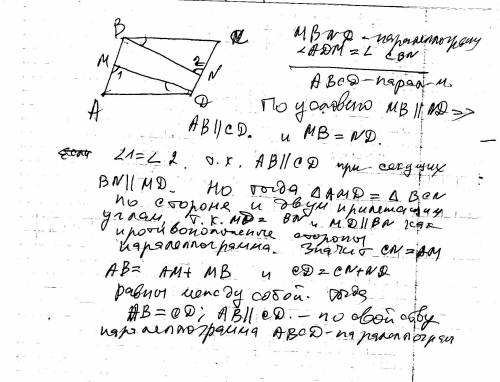 B
C
M
1
2
N
A
D
MBND - параллелограм
∠ADM = ∠CBN
ABCD - парал-м.
По условию MB ∥ ND =>
AB ∥ CD. и MB = ND.
∠1 = ∠2. т.к. AB ∥ CD при секущих
BN ∥ MD. Но тогда △AMD = △BCN
по стороне и двум прилежащим
углам, т.к. MD = BN и MD ∥ BN как
противоположные стороны
параллелограмма. Значит CN = AM
AB = AM + MB и CD = CN + ND
равны между собой. Тогда
AB = CD; AB ∥ CD. - по свойству
параллелограмма ABCD - параллелограм